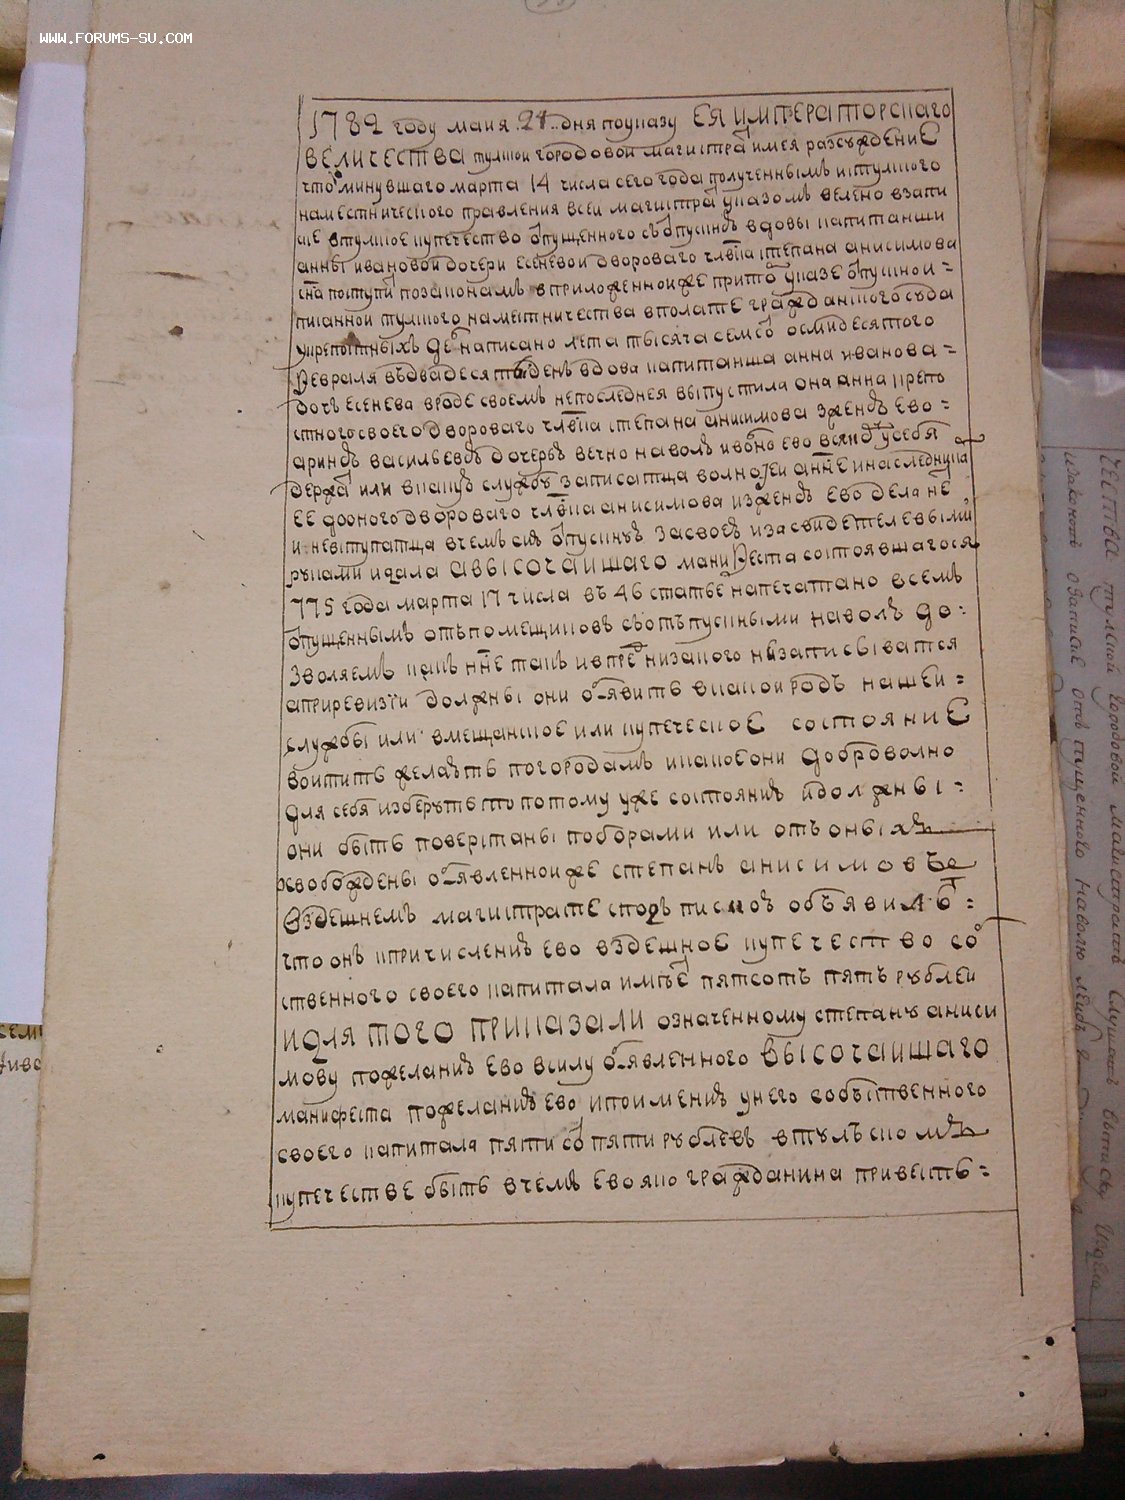 WWW.FORUMS-SU.COM
1782 году маия 21 дня по указу ЕЯ ИМПЕРАТОРСКАГО
ВЕЛИЧЕСТВА тулской городовой магистрат имея разсуждениЕ
что минувшаго марта 14 числа сего года полученнымъ ис тулского
наместнического правления в сей магистрат указомъ велено взапи
ше в тулское купечество отпущенного съ отпускнъ вдовы капитанши
анны ивановой дочери есеневой дворового члвка степана анисимова
поступи по законамъ в приложенной же при то указе отпускнои =
писанной тулского наместничества в полате гражданского суда
у крепостныхъ де написано лета тысяча семсо осмидесятого
февраля въ двадесятый день вдова капитанша анна иванова =
дочь есенева в роде своемъ непоследнея выпустила она анна крепо
стного своего дворового члвка степана анисимова з женъ ево =
ариной васильевой дочерью вечно на волю и волно ево всякому у себя
держа или в какую службу записатца волно и ей анне и наследнико
ее до оного дворового члвка анисимова и з жены ево дела не
и не вступатца в чемъ сию отпускную за своею и за свидетелевыми
руками и дала а ВЫСОЧАИШАГО манифеста состоявшагося
775 года марта 17 числа въ 46 статье напечатано всемъ
отпущеннымъ отъ помещиковъ съ отъпускными на волю до =
зволяемъ какъ нне такъ и впре ни за кого не записыватся
а при ревизии должены они обявить в какой родъ нашей =
службы или в мещанское или купеческоЕ состояниЕ
воитить желаютъ по городамъ и какое они добровольно
для себя изберутъ то по тому уже состоянию и должены =
они быть поверстаны поборами или отъ оныхъ
освобождены обявленной же степанъ анисимовъ
в здешнемъ магистрате с подъпискою объявилъ =
что онъ к причислению ево в здешноЕ купечество со
ственного своего капитала имеЕ пятсотъ пять рублей
И ДЛЯ ТОГО ПРИКАЗАЛИ означенному степану аниси
мову по желанию ево в силу обявленного ВЫСОЧАИШАГО
манифеста по желанию ево и по имению у него собъственного
своего капитала пяти со пяти рублевъ в тулъскомъ
купечестве быть в чемъ ево яко гражданина привесть =